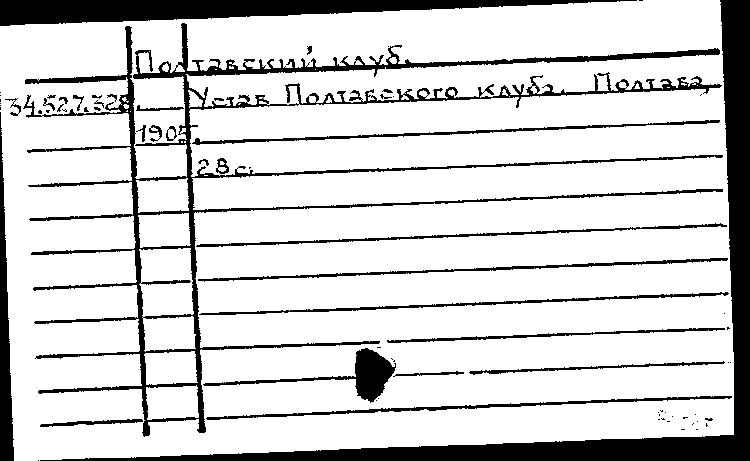 Полтавский клуб.
34.52.7.328. Устав Полтавского клуба. Полтава,
1905.
28 с.